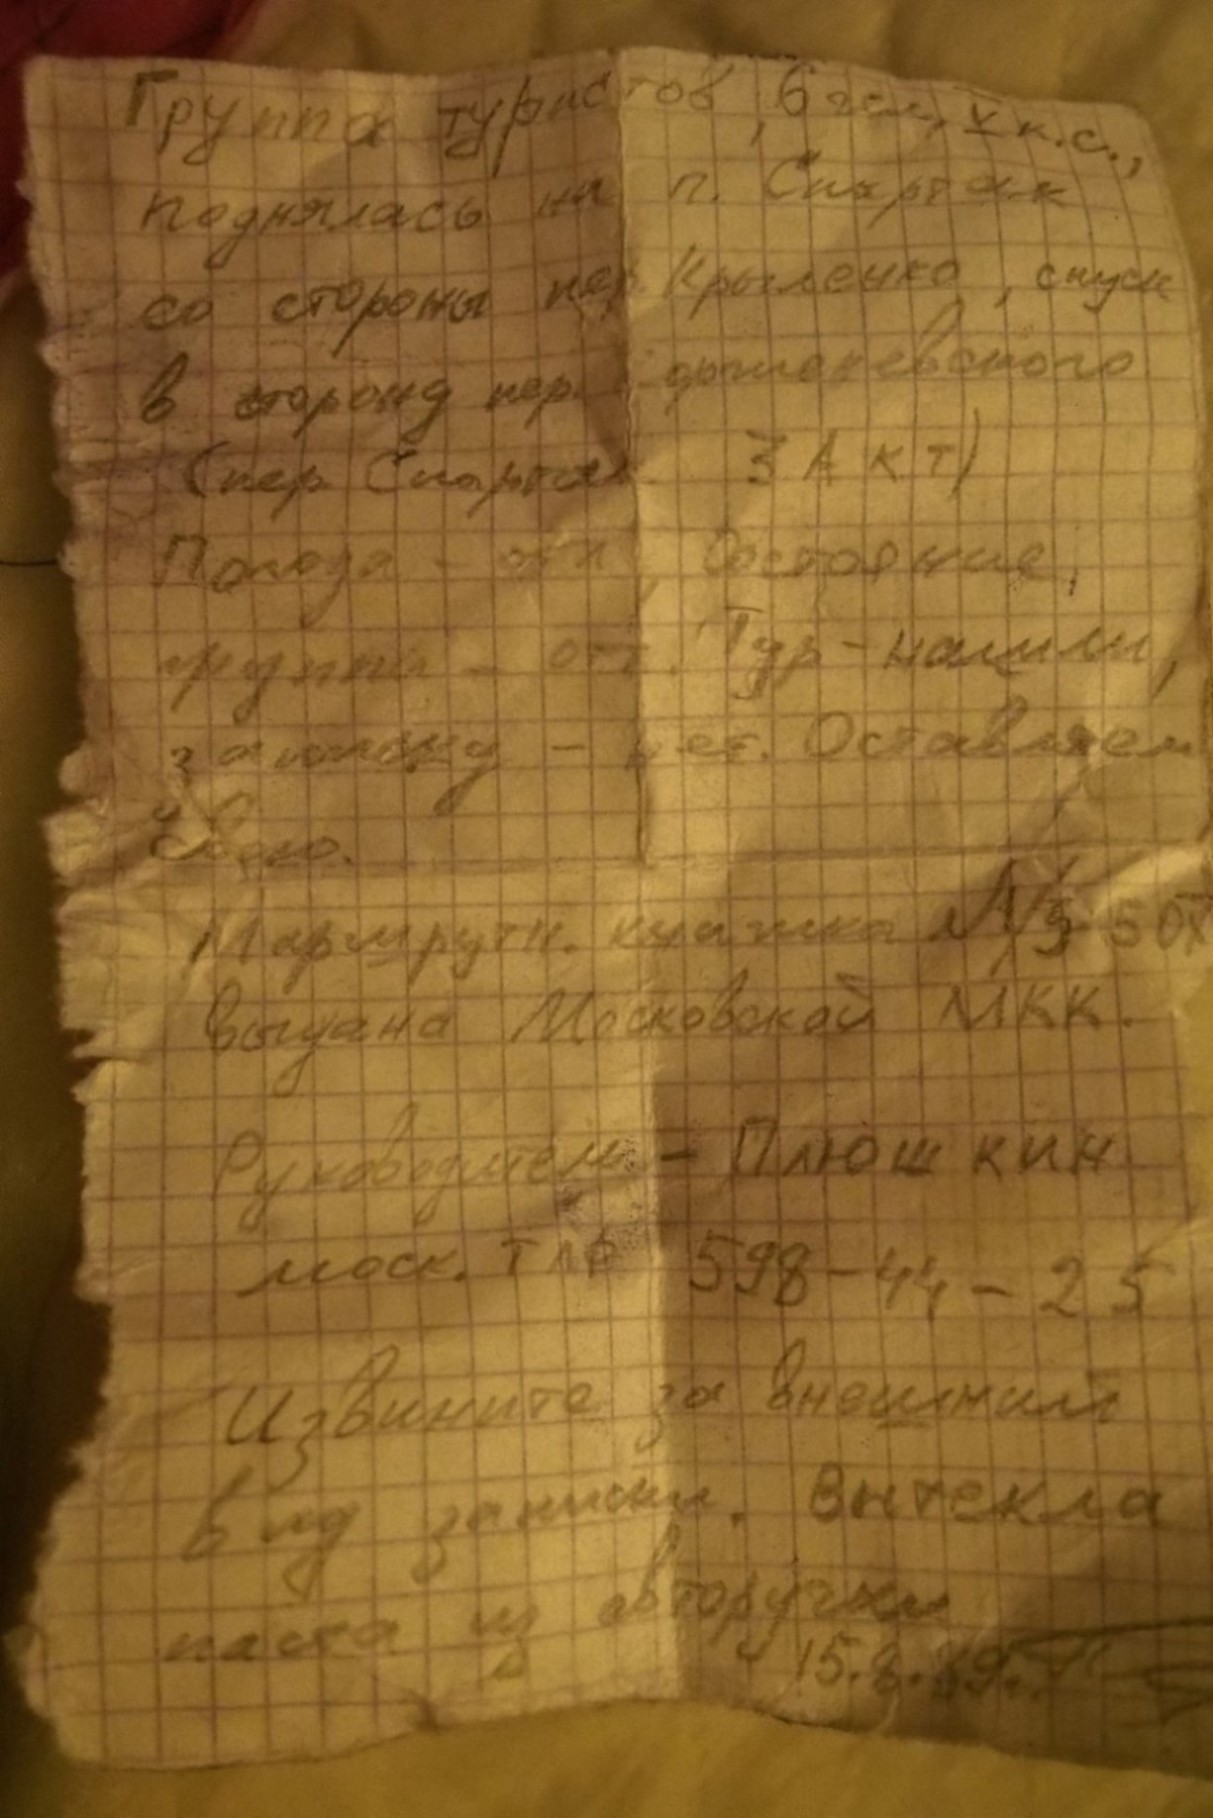 Группа туристов, 6 чел, V к.с.,
поднялась на п. Спартак
со стороны пер. Крыленко, спуск
в сторону пер.
(пер. Спартак 3А КТ)
Погода - отл. Состояние
группы - отл. Тур - нашли,
записку - нет. Оставляем
свою.
Маршрутн. книжка №
выдана Московской МКК.
Руководитель - Плюшкин
моск. тлф 598-44-25
Извините за внешний
вид записки. Вытекла
паста из авторучки
15.8.89г.